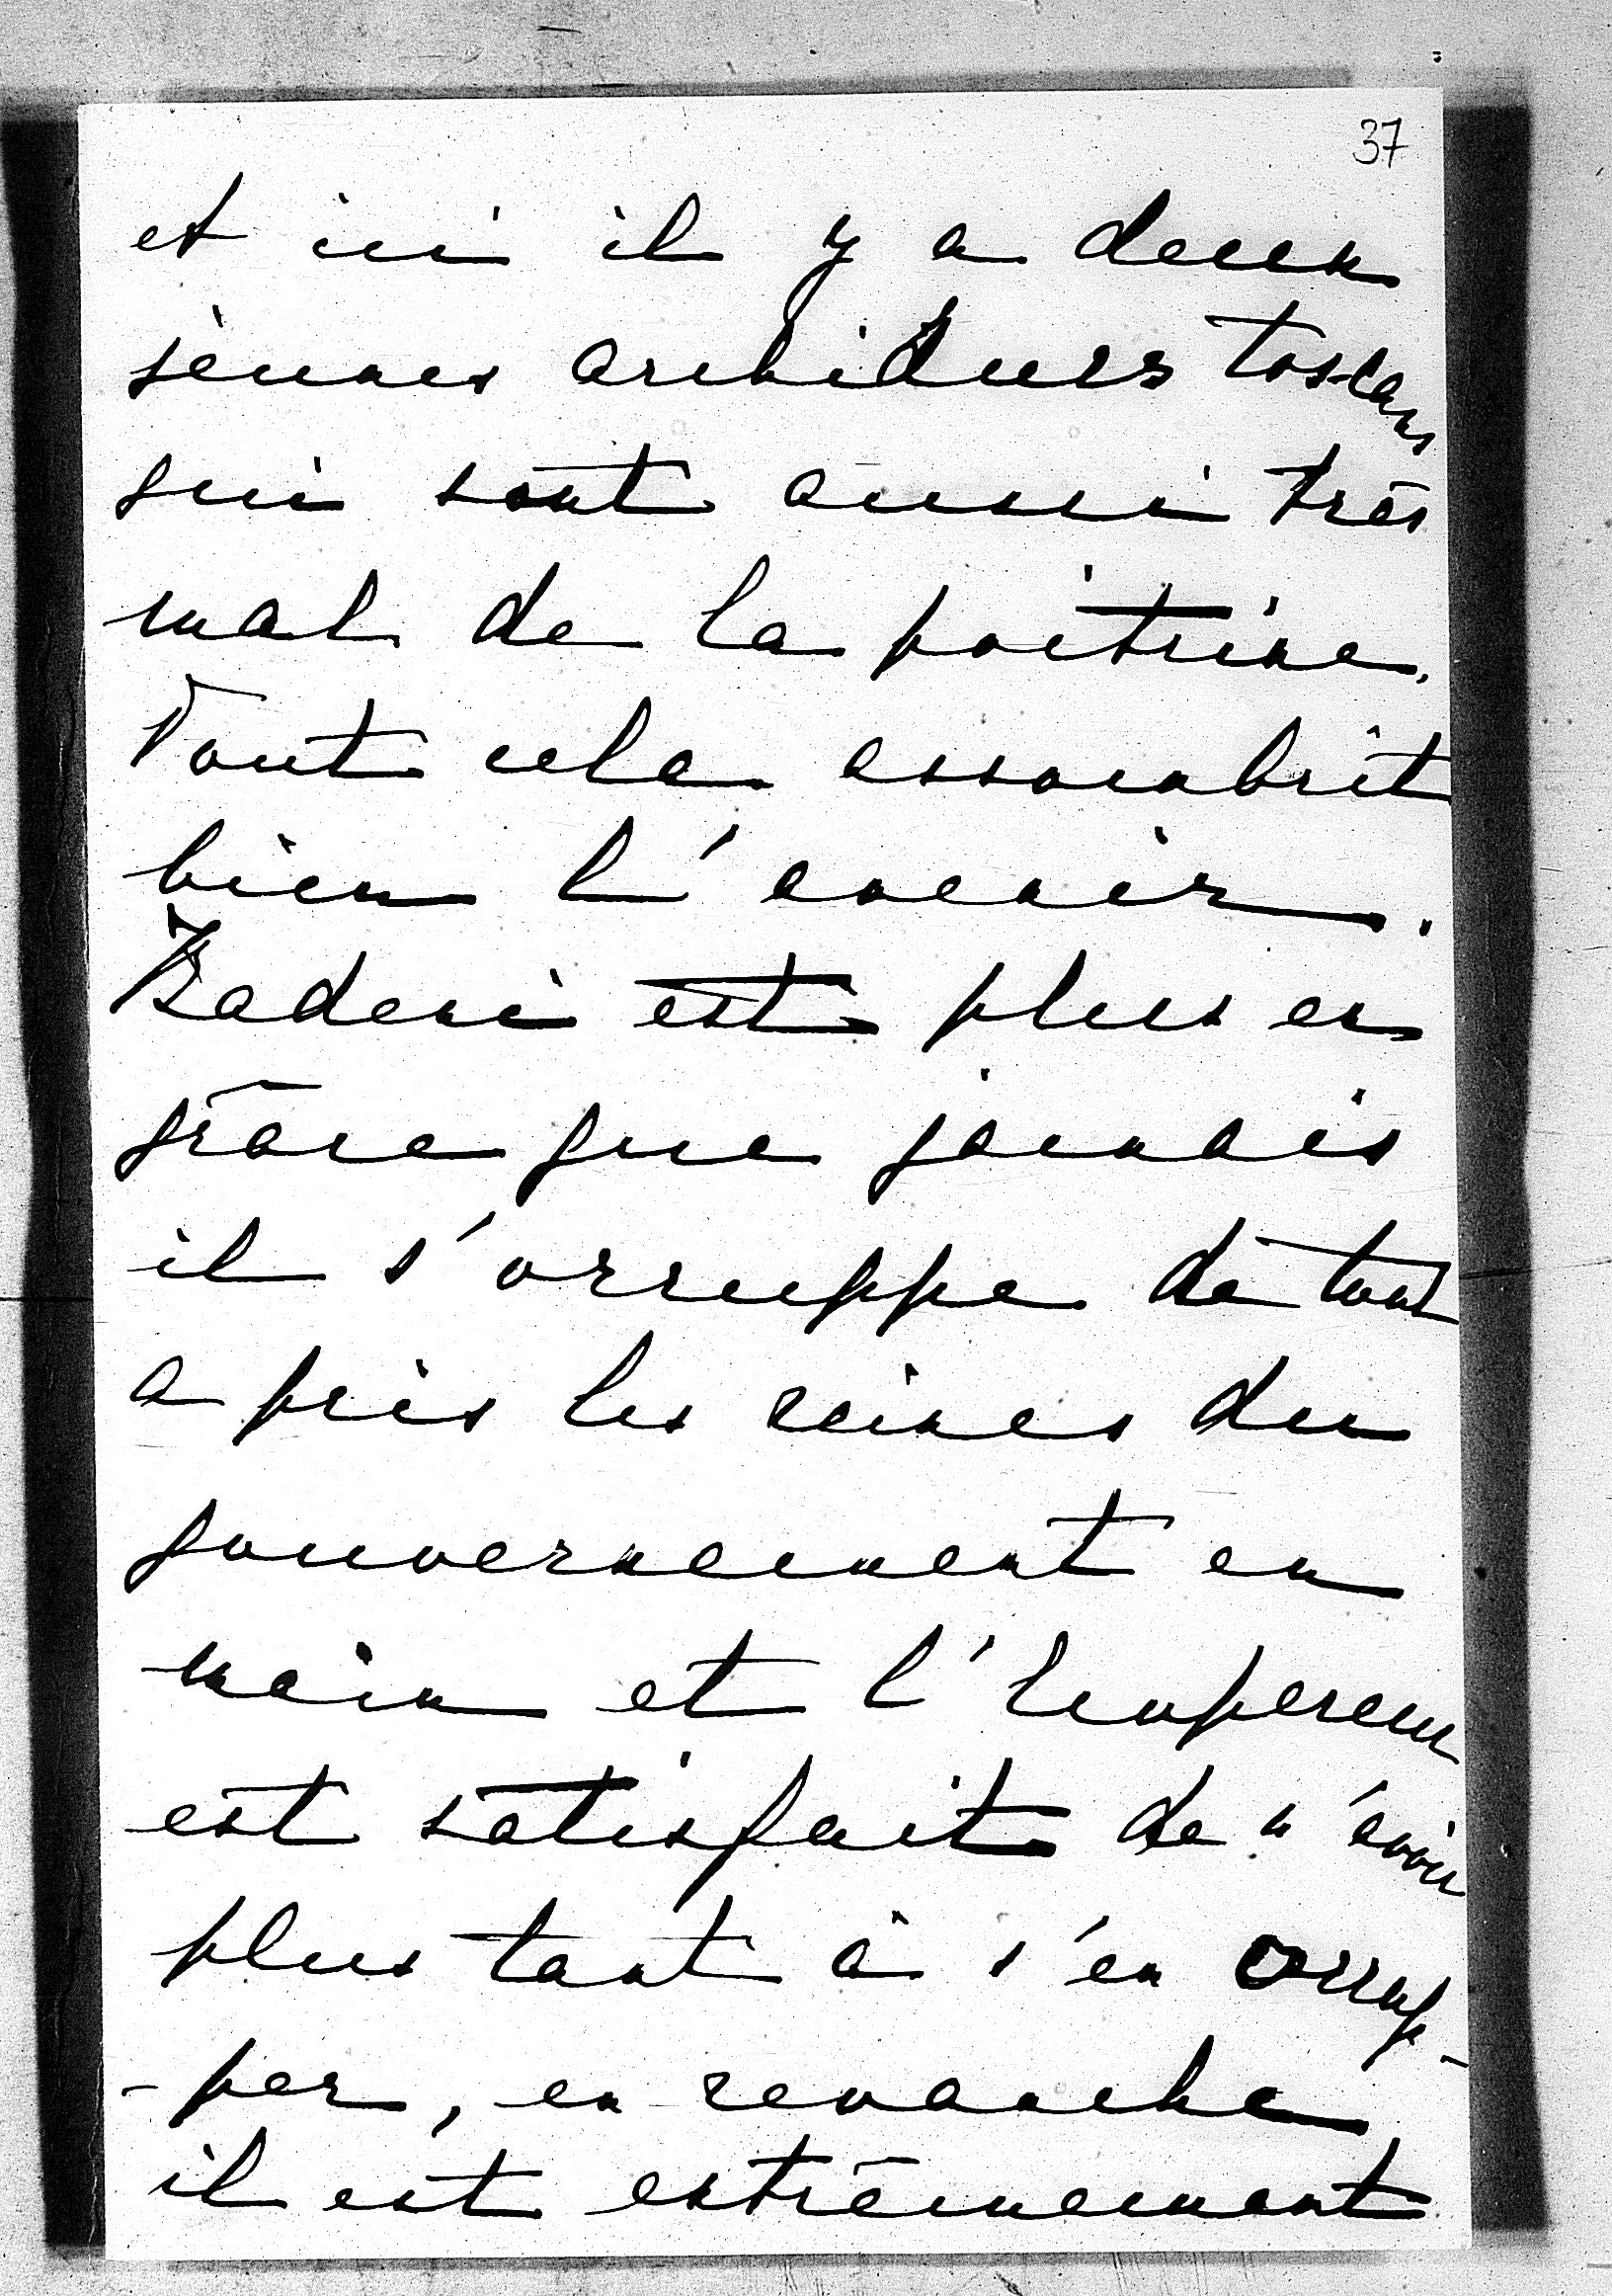 37
et ici il y a deux
jeunes archiducs toscans
qui sont aussi très
mal de la poitrine.
Tout cela assombrit
bien l'avenir.
Badeni est plus en
grâce que jamais
il s'occuppe de tout
a pris les reines du
gouvernement en
main et l'Empereur
est satisfait de n'avoir
plus tant à s'en occup-
-per, en revanche
il est extrêmement